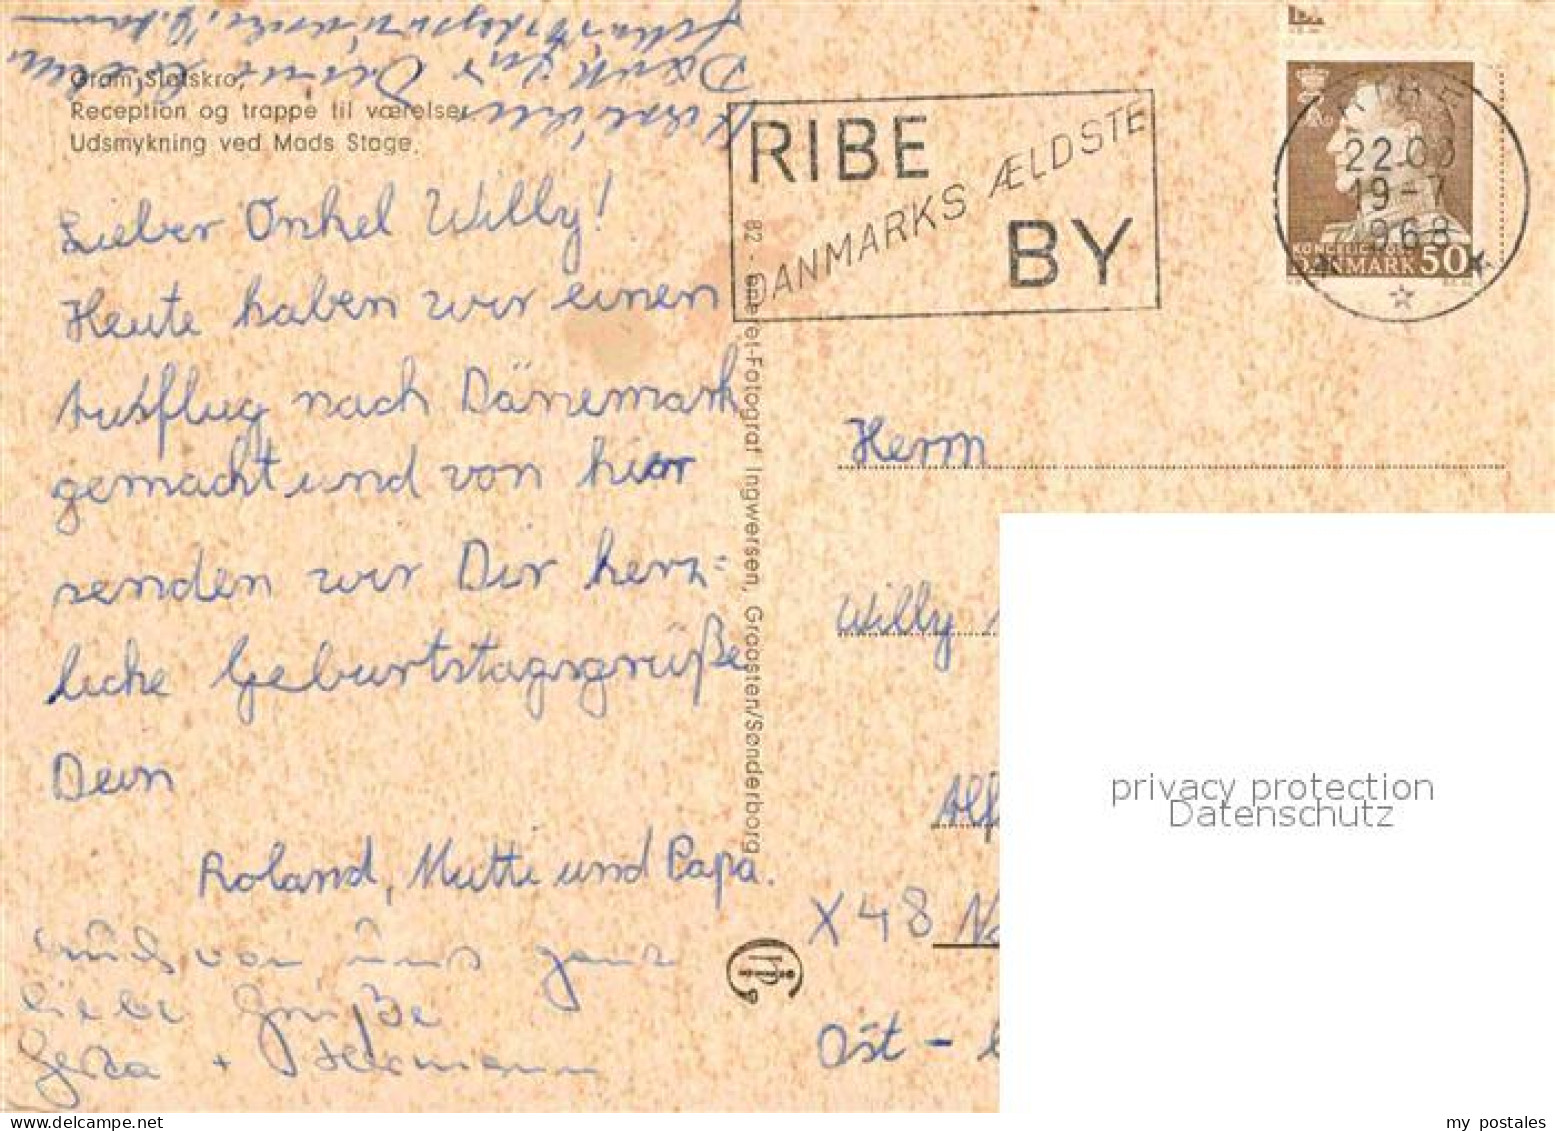 Gram Slotskro,
Reception og trappe til værelser
Udsmykning ved Mads Stage.
Lieber Onkel Willy!
Heute haben wir einen
Ausflug nach Dänemark
gemacht und von hier
senden wir Dir herz=
liche Geburtstagsgrüße
Dein
Roland, Mutti und Papa.
Auch von uns ganz
liebe Grüße
Gerda + Hermann
Dank für
82 - Eneret-Fotograf Ingwersen, Graasten/Sønderborg
RIBE
DANMARKS ÆLDSTE
BY
RIBE
22.00
19-7
1968
DANMARK 50
Herrn
Willy
Alf
X 48 Na
Ost -
privacy protection
Datenschutz
my postales